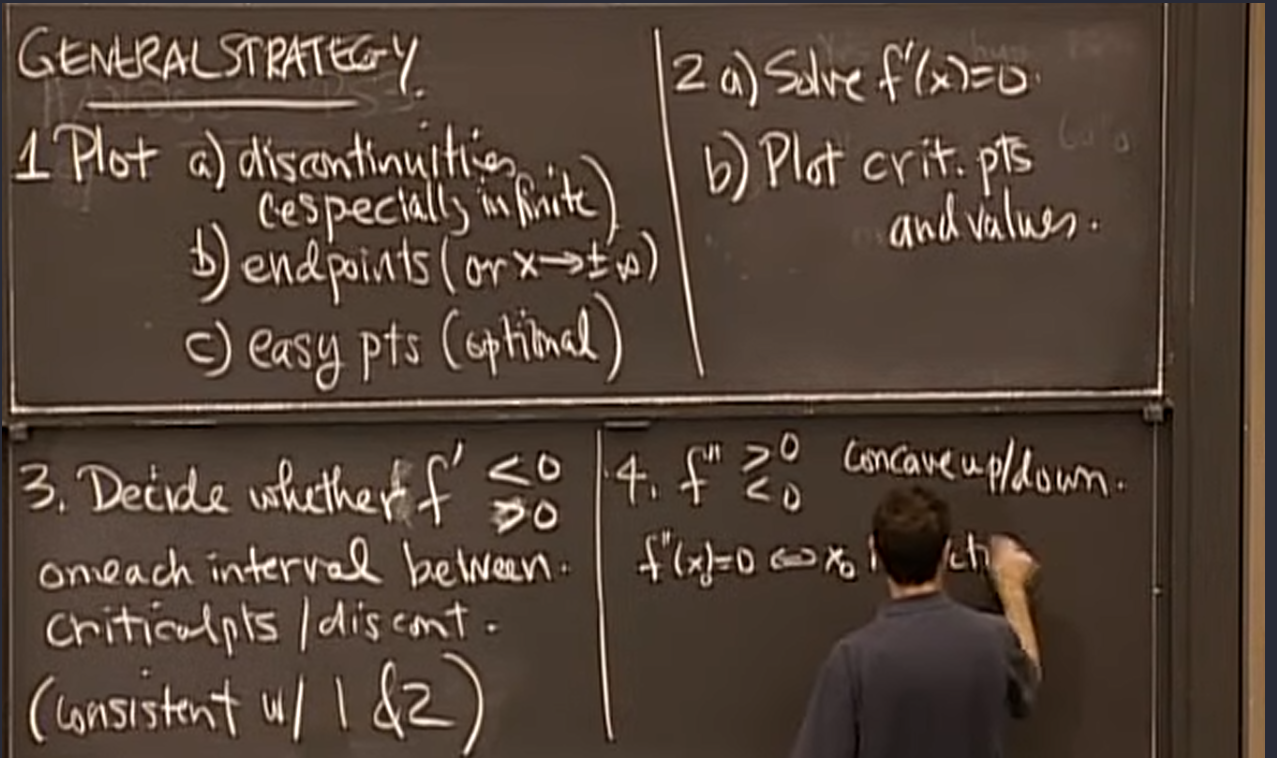 GENERAL STRATEGY.
1 Plot a) discontinuities
(especially infinite)
b) endpoints (or x→±∞)
c) easy pts (optional)
2 a) Solve f'(x)=0.
b) Plot crit. pts
and values.
3. Decide whether f' <0
>0
on each interval between
critical pts / discont.
(consistent w/ 1 & 2)
4. f" >0 concave up/down.
<0
f"(x₀)=0 ⇔ x₀